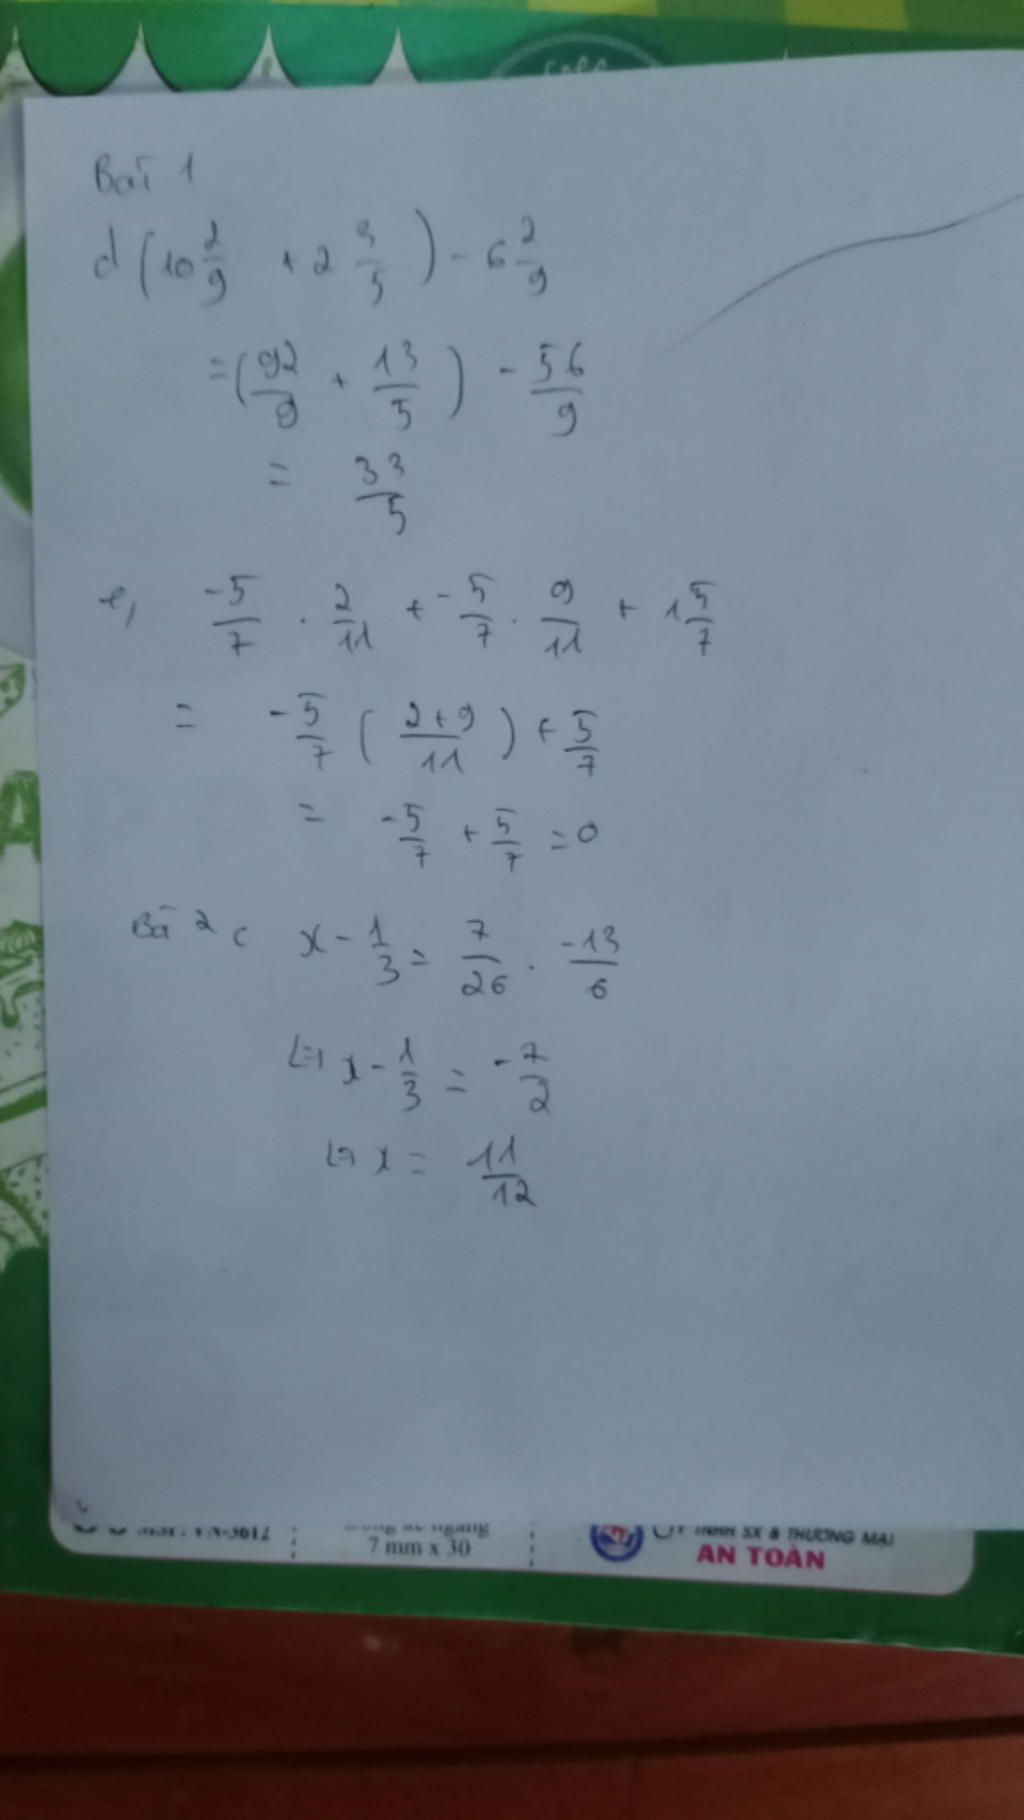 Bài 1
d (10 2/9 + 2 3/5) - 6 2/9
= (92/9 + 13/5) - 56/9
= 33/5
e, -5/7 . 2/11 + -5/7 . 9/11 + 1 5/7
= -5/7 (2+9/11) + 5/7
= -5/7 + 5/7 = 0
Bà 2 c x - 1/3 = 7/26 . -13/6
<=> x - 1/3 = -7/2
<=> x = 11/12
7 mm x 30
TNHH SX & THƯƠNG MẠI
AN TOÀN